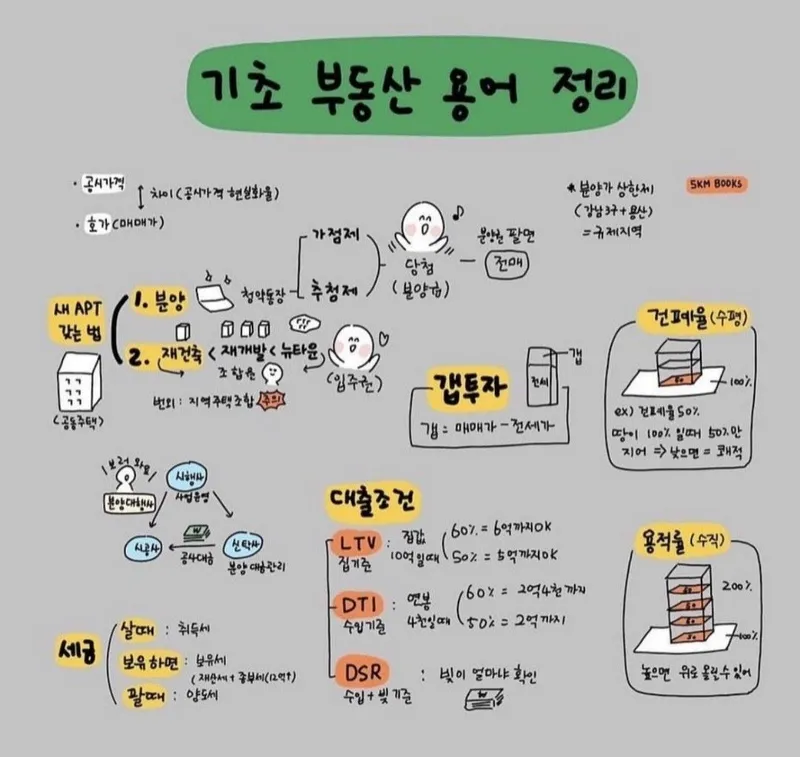 기초 부동산 용어 정리
• 공시가격
차이(공시가격 현실화율)
• 호가(매매가)
* 분양가 상한제
(강남3구+용산)
=규제지역
SKM BOOKS
새 APT
갖는 법
(공동주택)
1. 분양
청약통장
가점제
추첨제
당첨
(분양권)
분양권 팔면
전매
2. 재건축 < 재개발 < 뉴타운
조합원
(입주권)
번외: 지역주택조합 주의
갭투자
갭 = 매매가 - 전세가
갭
전세
건폐율(수평)
50
100%
ex) 건폐율 50%
땅이 100%일때 50%만
지어 => 낮으면 = 쾌적
보러 와요
분양대행사
시행사
사업운영
시공사
공사대금
신탁사
분양대금관리
대출조건
LTV : 집값
집기준
10억일때
60% = 6억까지OK
50% = 5억까지OK
DTI : 연봉
수입기준
4천일때
60% = 2억4천까지
50% = 2억까지
DSR : 빚이 얼마냐 확인
수입+빚기준
용적률(수직)
200%
50
50
50
50
100%
높으면 위로 올릴수있어
세금
살때 : 취득세
보유하면 : 보유세
(재산세+종부세(12억↑)
팔때 : 양도세